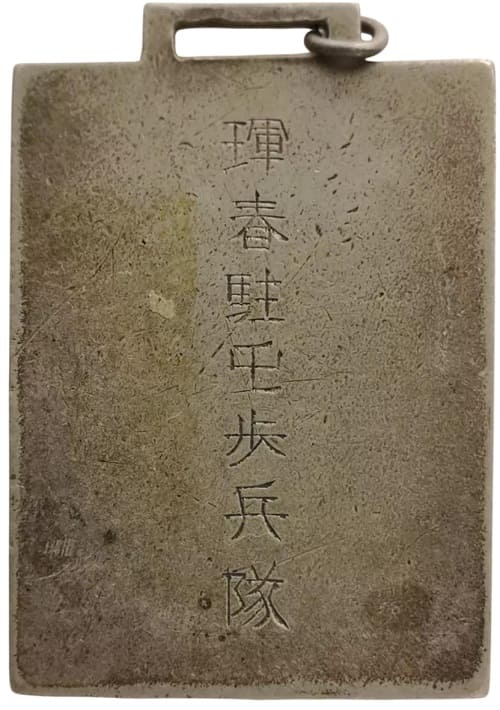 琿春駐屯歩兵隊